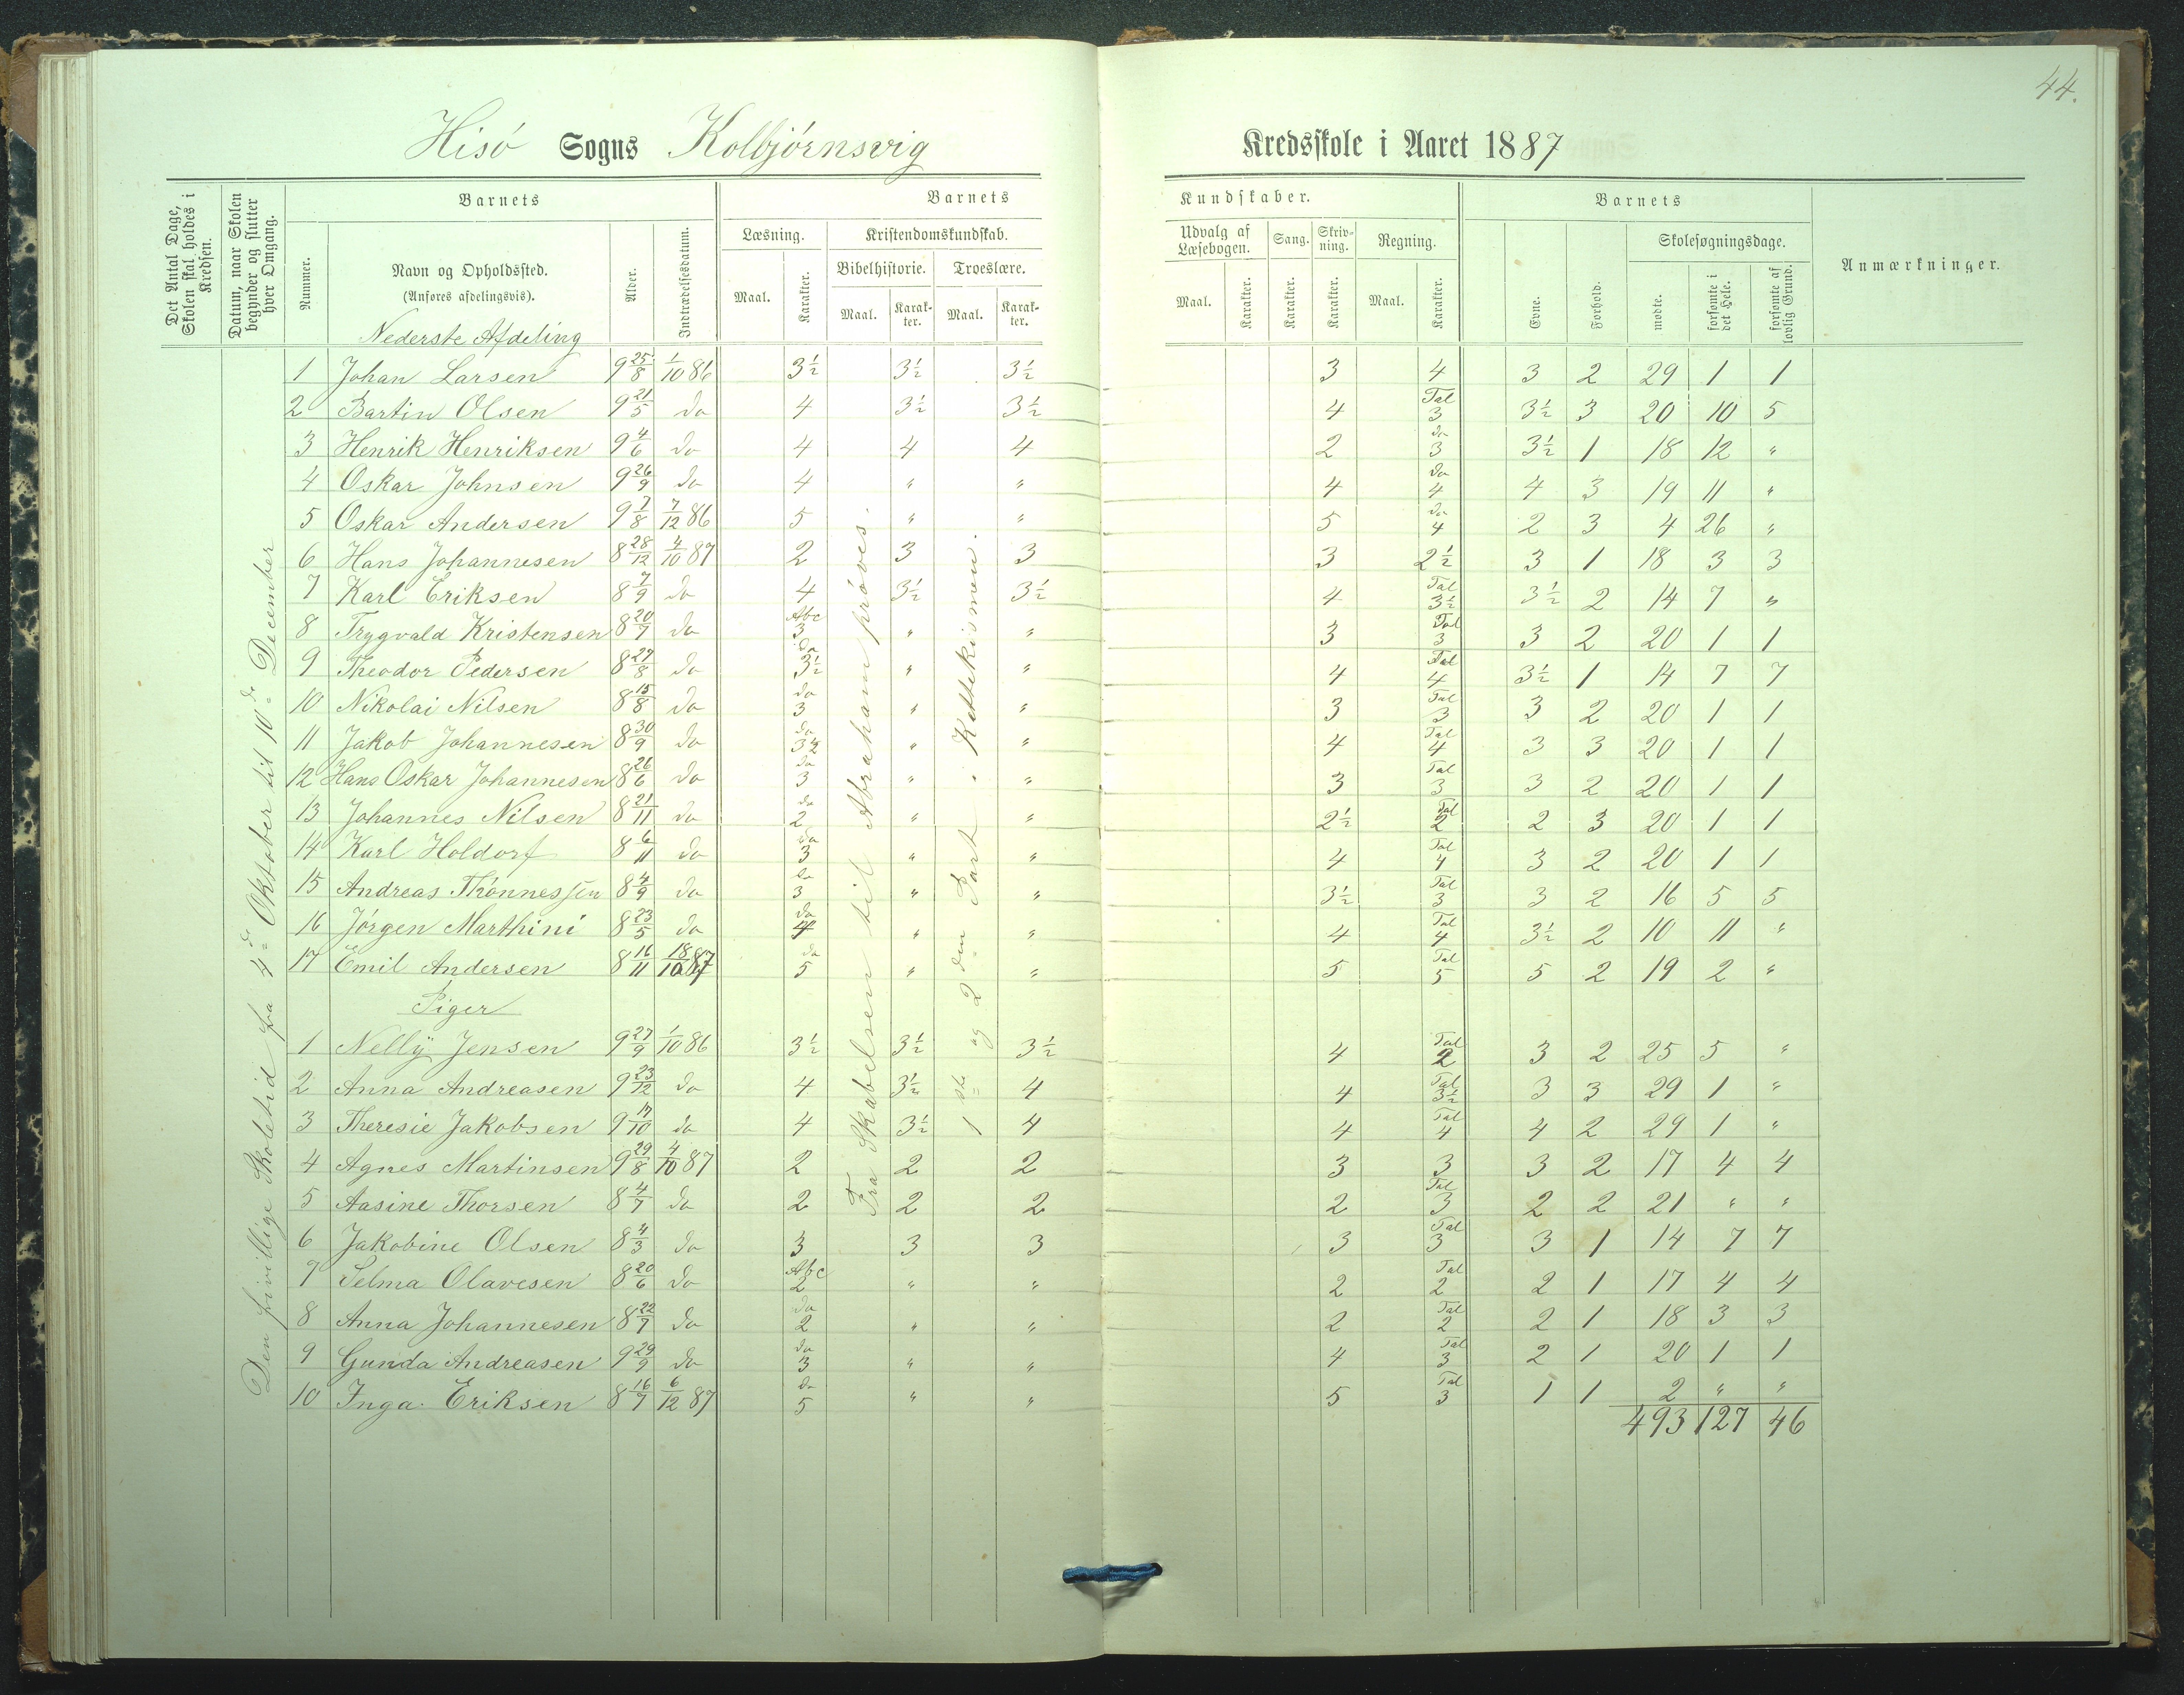 44.
Hisö Sogns Kolbjörnsvig Kredsskole i Aaret 1887
Det Antal Dage, Skolen skal holdes i Kredsen.
Datum, naar Skolen begynder og slutter hver Omgang.
Barnets
Nummer.
Navn og Opholdssted.
(Anføres afdelingsvis).
Alder.
Indtrædelsesdatum.
Barnets Kundskaber.
Læsning. Kristendomskundskab. Udvalg af Læsebogen. Sang. Skrivning. Regning.
Bibelhistorie. Troeslære.
Maal. Karakter. Maal. Karakter. Maal. Karakter. Maal. Karakter. Karakter. Karakter. Maal. Karakter.
Barnets
Evne. Forhold. Skolesøgningsdage.
mødte. forsømte i det Hele. forsømte af lovlig Grund.
Anmærkninger.
Nederste Afdeling
Den frivillige Skoletid fra 4de Oktober til 10de December
Fra Skabelsen til Abraham prøves.
1ste og 2den Part i Kattekismen.
1 Johan Larsen 9 25/8 1/10 86 3½ 3½ 3½ 3 4 3 2 29 1 1
2 Bartin Olsen 9 21/5 do 4 3½ 3½ 4 Tal 3 3½ 3 20 10 5
3 Henrik Henriksen 9 4/6 do 4 4 4 2 do 3 3½ 1 18 12 "
4 Oskar Johnsen 9 26/9 do 4 " " 4 do 4 4 3 19 11 "
5 Oskar Andersen 9 7/8 7/12 86 5 " " 5 do 4 2 3 4 26 "
6 Hans Johannesen 8 28/12 4/10 87 2 3 3 3 2½ 3 1 18 3 3
7 Karl Eriksen 8 7/9 do 4 3½ 3½ 4 Tal 3½ 3½ 2 14 7 "
8 Trygvald Kristensen 8 20/7 do Abc 3 " " 3 Tal 3 3 2 20 1 1
9 Theodor Pedersen 8 27/8 do do 3½ " " 4 Tal 4 3½ 1 14 7 7
10 Nikolai Nilsen 8 15/8 do do 3 " " 3 Tal 3 3 2 20 1 1
11 Jakob Johannesen 8 30/9 do do 3½ " " 4 Tal 4 3 3 20 1 1
12 Hans Oskar Johannesen 8 26/6 do do 3 " " 3 Tal 3 3 2 20 1 1
13 Johannes Nilsen 8 21/11 do do 2 " " 2½ Tal 2 2 3 20 1 1
14 Karl Holdorf 8 6/11 do do 3 " " 4 Tal 4 3 2 20 1 1
15 Andreas Thönnessen 8 4/9 do do 3 " " 3½ Tal 3 3 2 16 5 5
16 Jörgen Marthini 8 23/5 do do 4 " " 4 Tal 4 3½ 2 10 11 "
17 Emil Andersen 8 16/11 18/10 87 do 5 " " 5 Tal 5 5 2 19 2 "
Piger
1 Nelly Jensen 9 27/9 1/10 86 3½ 3½ 3½ 4 Tal 2 3 2 25 5 "
2 Anna Andreasen 9 23/12 do 4 3½ 4 4 Tal 3½ 3 3 29 1 "
3 Theresie Jakobsen 9 17/10 do 4 3½ 4 4 Tal 4 4 2 29 1 "
4 Agnes Martinsen 9 29/8 4/10 87 2 2 2 3 3 3 2 17 4 4
5 Aasine Thorsen 8 4/7 do 2 2 2 2 Tal 3 2 2 21 " "
6 Jakobine Olsen 8 4/3 do 3 3 3 3 Tal 3 3 1 14 7 7
7 Selma Olavesen 8 20/6 do Abc 2 " " 2 Tal 2 2 1 17 4 4
8 Anna Johannesen 8 22/7 do do 2 " " 2 Tal 2 2 1 18 3 3
9 Gunda Andreasen 9 29/9 do do 3 " " 4 Tal 3 2 1 20 1 1
10 Inga Eriksen 8 16/7 6/12 87 do 5 " " 5 Tal 3 1 1 2 " "
493 127 46